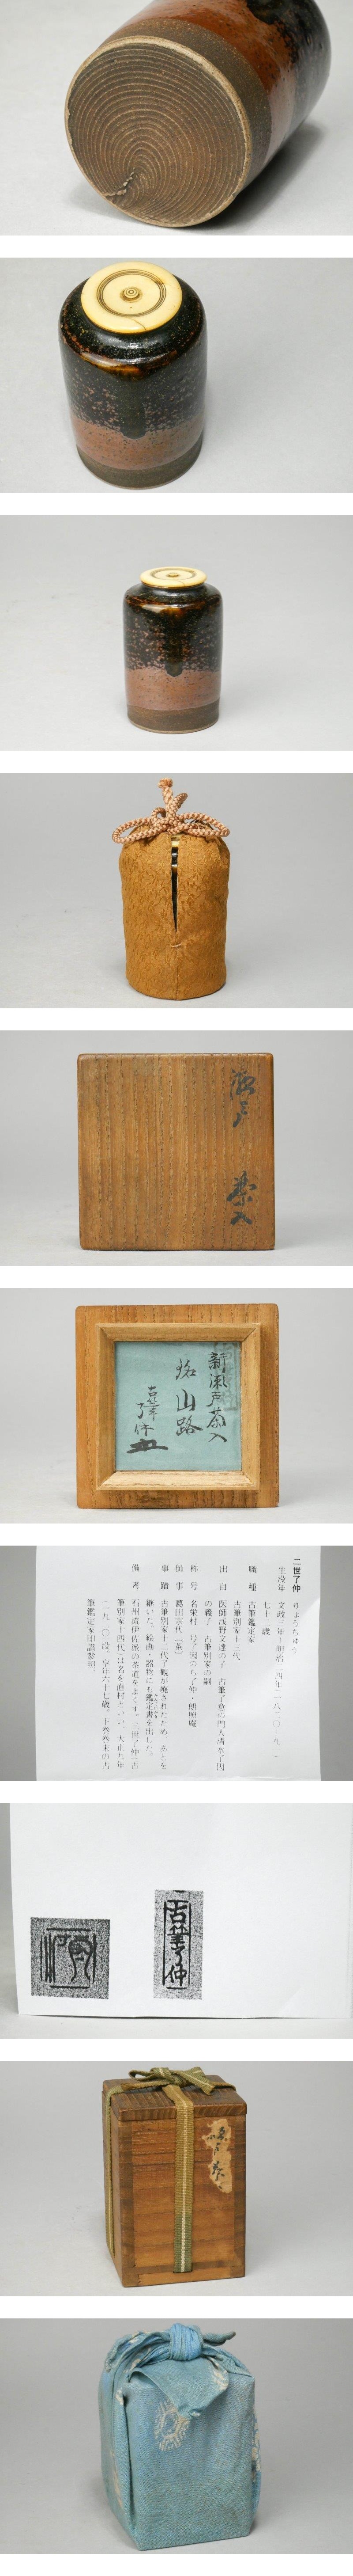 瀬戸 茶入
新瀬戸茶入
銘 山路
古筆了仲
二世了仲 りょうちゅう
生没年 文政三年―明治
七十 歳
職種 古筆鑑定家
古筆別家十三代
出自 医師浅野文達の子、古筆了意の門人清水了因
の養子、古筆別家の嗣
称号 名栄村、号了因のち了仲・朗照庵
師事 葛田宗代(茶)
事蹟 古筆別家十二代了観が廃されたため、あとを
継いだ。絵画・器物にも鑑定書を出した。
備考 石州流伊佐派の茶道をよくす。三世了仲(古
筆別家十四代)は名を直村といい、大正九年
(一九二〇)没、享年六十七歳。下巻巻末の古
筆鑑定家印譜参照。
古筆了仲
瀬戸 茶